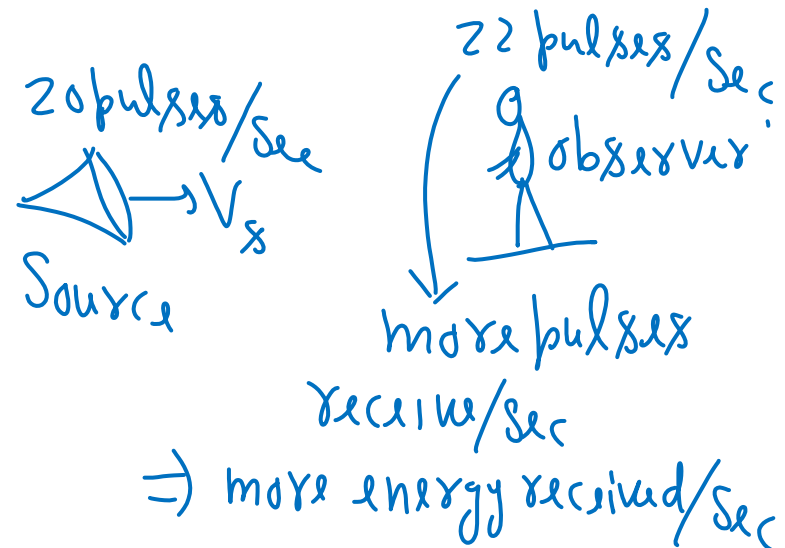 20pulses/sec
→ Vs
Source
22 pulses/sec.
observer
more pulses
receive/sec
⇒ more energy received/sec